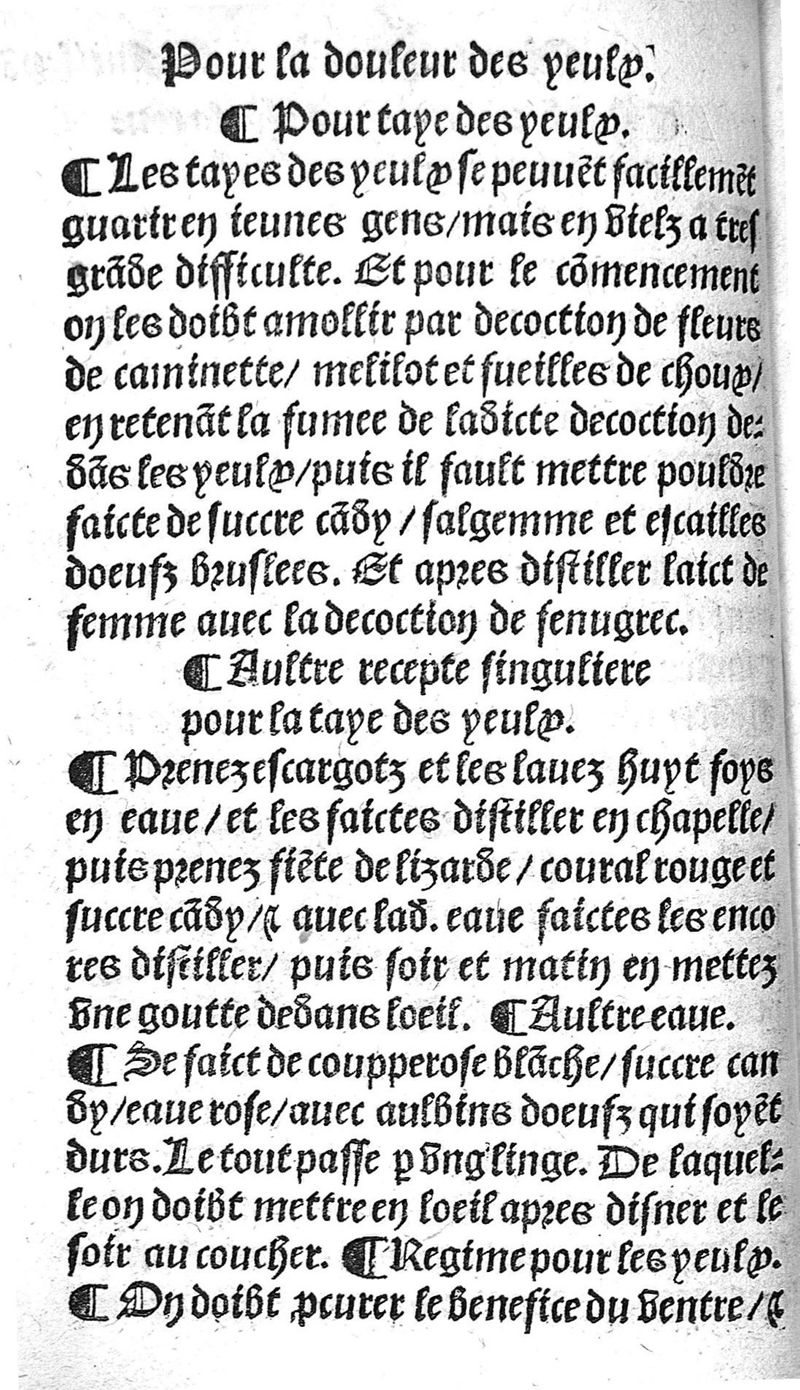 Pour la douleur des yeulx.
¶ Pour taye des yeulx.
¶ Les tayes des yeulx se peuuẽt facillemẽt
guarir en ieunes gens/mais en vielz a tres
grãde difficulte. Et pour le cõmencement
on les doibt amollir par decoction de fleurs
de caminette/ melilot et fueilles de choux/
en retenãt la fumee de ladicte decoction de⸗
dãs les yeulx/puis il fault mettre pouldre
faicte de succre cãdy / salgemme et escailles
doeufz bruslees. Et apres distiller laict de
femme auec la decoction de fenugrec.
¶ Aultre recepte singuliere
pour la taye des yeulx.
¶ Prenez escargotz et les lauez huyt foys
en eaue/et les faictes distiller en chapelle/
puis prenez fiẽte de lizarde/coural rouge et
succre cãdy/⁊ auec lad. eaue faictes les enco
res distiller/ puis soir et matin en mettez
vne goutte dedans loeil. ¶ Aultre eaue.
¶ Se faict de coupperose blãche/succre can
dy/eaue rose/auec aulbins doeufz qui soyẽt
durs. Le tout passe ꝑ vng linge. De laquel⸗
le on doibt mettre en loeil apres disner et le
soir au coucher. ¶ Regime pour les yeulx.
¶ On doibt ꝓcurer le benefice du ventre/⁊